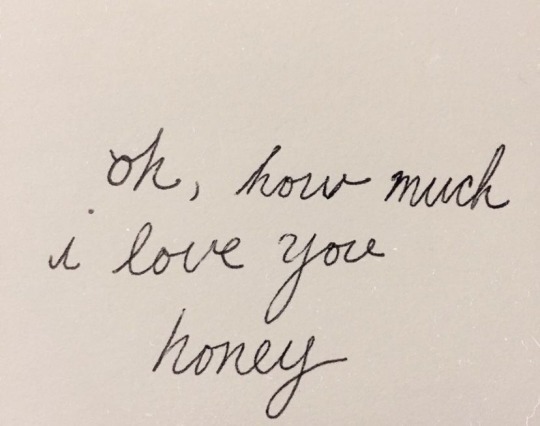 oh, how much
i love you
honey